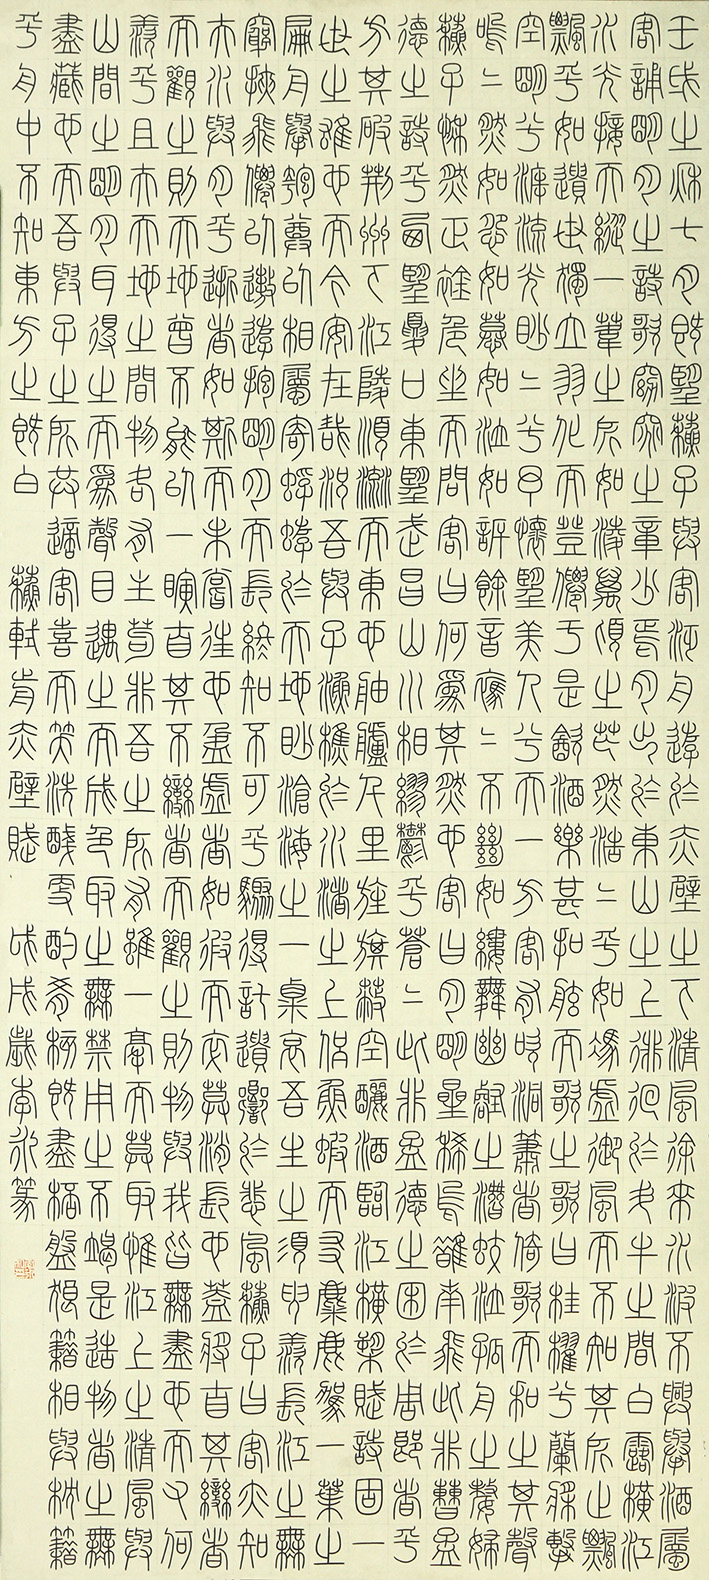 壬戌之秋七月既望蘇子與客泛舟遊於赤壁之下清風徐來水波不興舉酒屬
客誦明月之詩歌窈窕之章少焉月出於東山之上徘徊於斗牛之間白露橫江
水光接天縱一葦之所如凌萬頃之茫然浩々乎如馮虛御風而不知其所止飄
飄乎如遺世獨立羽化而登僊于是飲酒樂甚扣舷而歌之歌曰桂櫂兮蘭槳擊
空明兮泝流光眇々兮予懷望美人兮天一方客有吹洞簫者倚歌而和之其聲
嗚々然如怨如慕如泣如訴餘音嫋々不絕如縷舞幽壑之潛蛟泣孤舟之嫠婦
蘇子愀然正襟危坐而問客曰何為其然也客曰月明星稀烏鵲南飛此非曹孟
德之詩乎西望夏口東望武昌山川相繆鬱乎蒼々此非孟德之困於周郎者乎
方其破荊州下江陵順流而東也舳艫千里旌旗蔽空釃酒臨江橫槊賦詩固一
世之雄也而今安在哉況吾與子漁樵於水渚之上侶魚蝦而友麋鹿駕一葉之
扁舟舉匏尊以相屬寄蜉蝣於天地眇滄海之一粟哀吾生之須臾羨長江之無
窮挾飛僊以遨遊抱明月而長終知不可乎驟得託遺響於悲風蘇子曰客亦知
夫水與月乎逝者如斯而未嘗往也盈虛者如彼而卒莫消長也蓋將自其變者
而觀之則天地曾不能以一瞬自其不變者而觀之則物與我皆無盡也而又何
羨乎且夫天地之間物各有主苟非吾之所有雖一毫而莫取惟江上之清風與
山間之明月耳得之而為聲目遇之而成色取之無禁用之不竭是造物者之無
盡藏也而吾與子之所共適客喜而笑洗盞更酌肴核既盡杯盤狼籍相與枕籍
乎舟中不知東方之既白 蘇軾前赤壁賦 戊戌歲李永篆